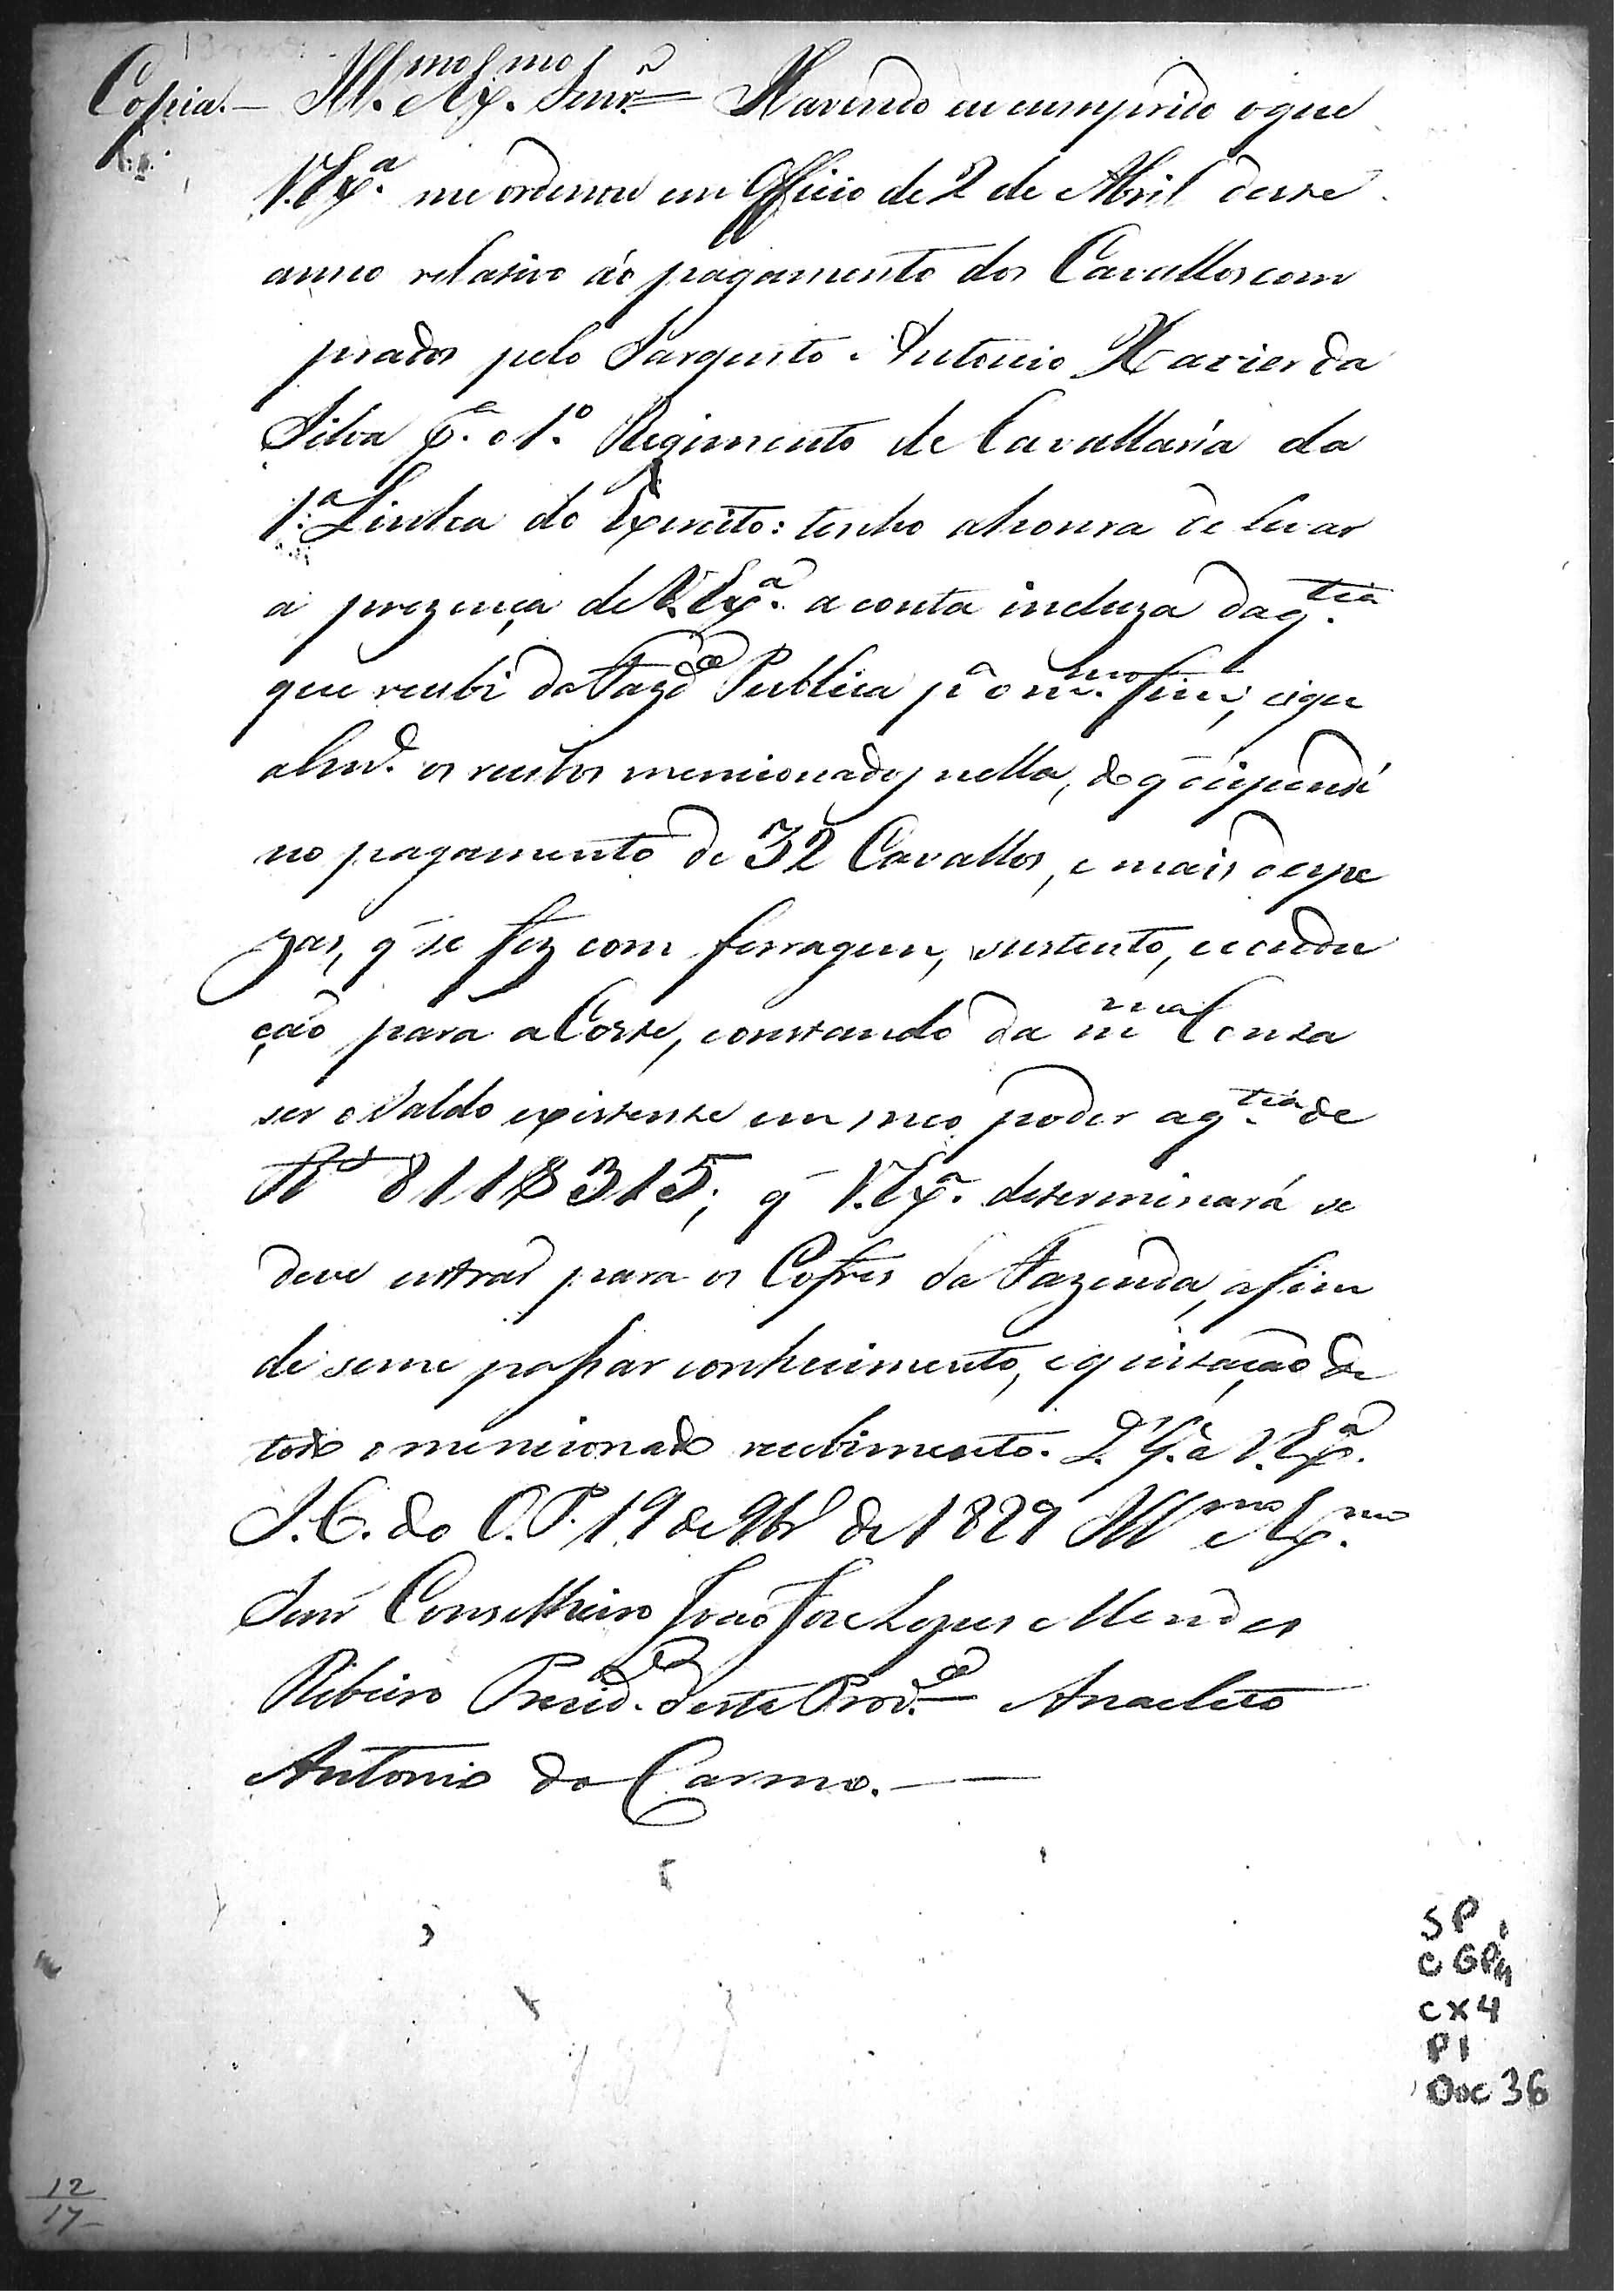 Copia. — Ill.mo Ex.mo Senr. = Havendo eu cumprido o que
V. Ex.ª me ordenou em Officio de 2 de Abril deste
anno relativo áo pagamento dos Cavallos com
prados pelo Sargento Antonio Xavier da
Silva p.ª o 1.º Regimento de Cavallaria da
1.ª Linha do Exercito: tenho a honra de levar
a prezença de V. Ex.ª a conta incluza da q.tia
que recebi da Fazd.ª Publica p.ª o m.mo fim, e igu
alm.e os recibos mencionados nella, do q̃ dispendi
no pagamento de 32 Cavallos, e mais despe
zas, q̃ se fez com ferragem, sustento, e condu
ção para a Corte, constando da m.ma Conta
ser o Saldo existente em meo poder a q.tia de
R.s 811$315; q̃ V. Ex.ª determinará se
deve entrar para os Cofres da Fazenda, afim
de seme passar conhecimento, e quitação de
todo o mencionado recebimento. D. G. a V. Ex.ª
I. C. do O. P. 19 de 9br.º de 1829 Ill.mo e Ex.mo
Senr. Conselheiro João Joze Lopes Mendes
Ribeiro Prezid.e desta Prov.ca — Anacleto
Antonio do Carmo. —
SP
CGPM
CX4
P1
Doc 36
12
17